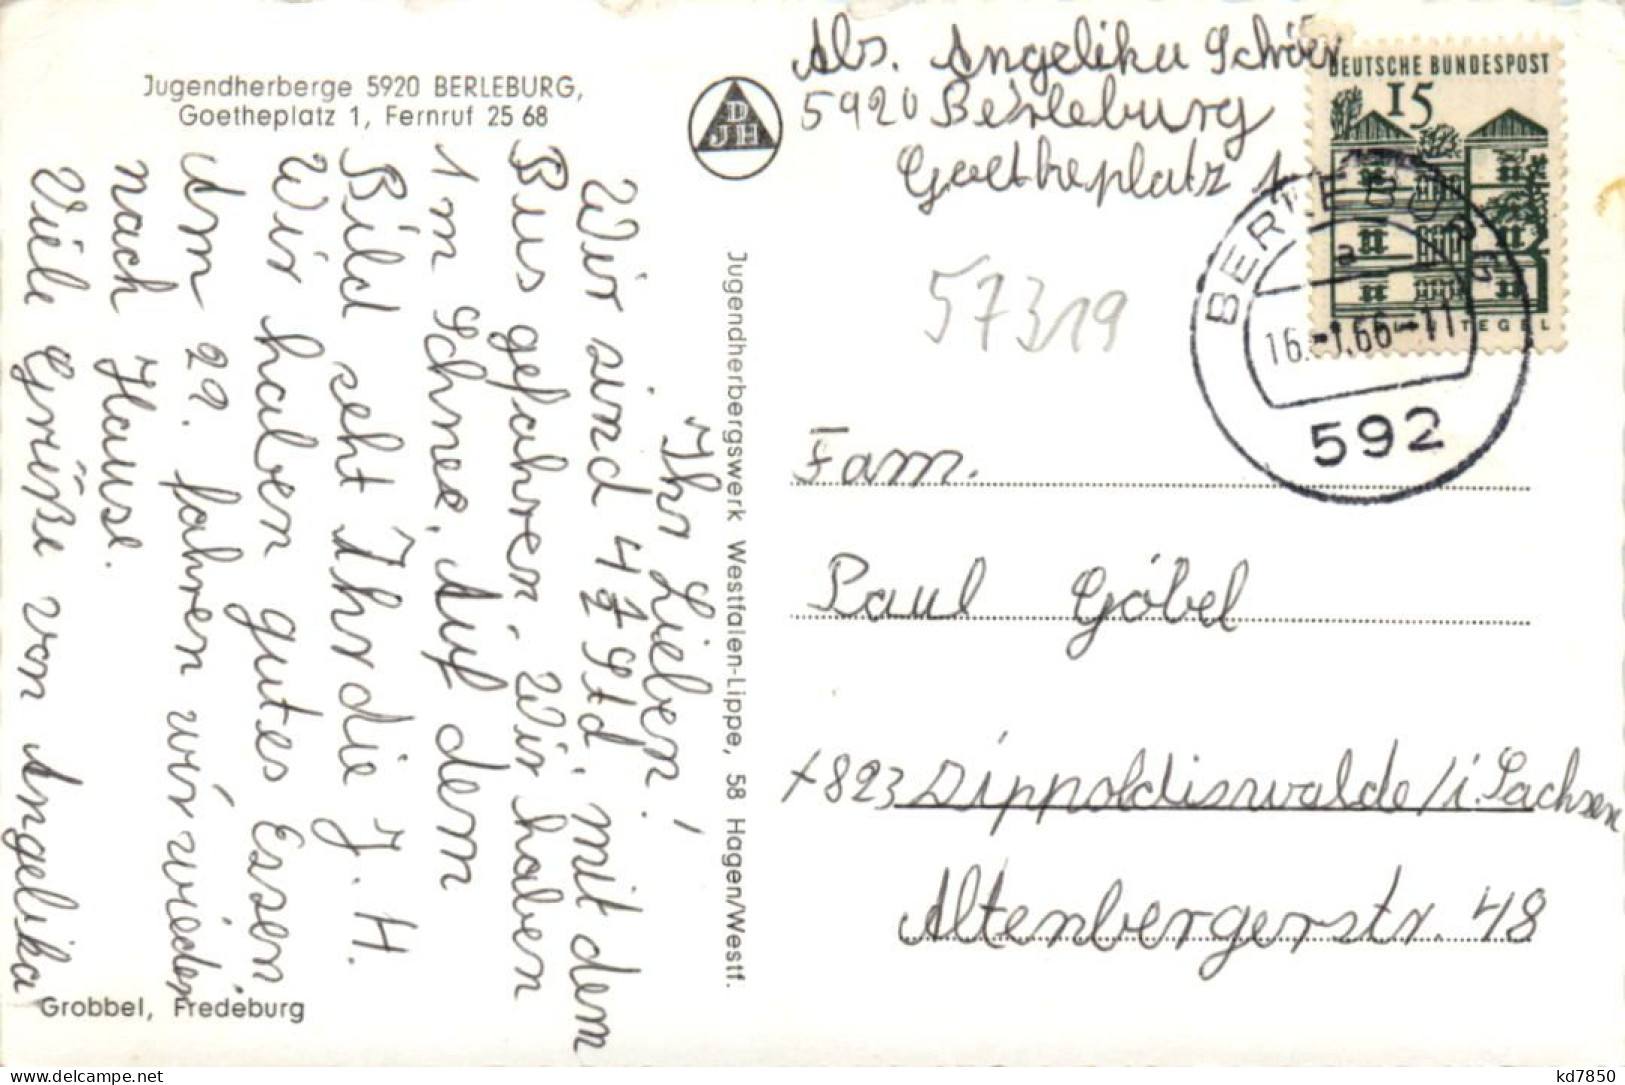 Jugendherberge 5920 BERLEBURG,
Goetheplatz 1, Fernruf 25 68
Ihr Lieben!
Wir sind 4½ Std. mit dem
Bus gefahren. Wir haben
1 m Schnee. Auf dem
Bild seht Ihr die J. H.
Wir haben gutes Essen
Am 29. fahren wir wieder
nach Hause.
Viele Grüße von Angelika
Grobbel, Fredeburg
Jugendherbergswerk Westfalen-Lippe, 58 Hagen/Westf.
DJH
Abs. Angelika
5920 Berleburg
Goetheplatz 1
57319
DEUTSCHE BUNDESPOST
15
TEGEL
BERLEBURG
a
16.-1.66-11
592
Fam.
Paul Göbel
x823 Dippoldiswalde/i. Sachsen
Altenbergerstr. 48
kd7850